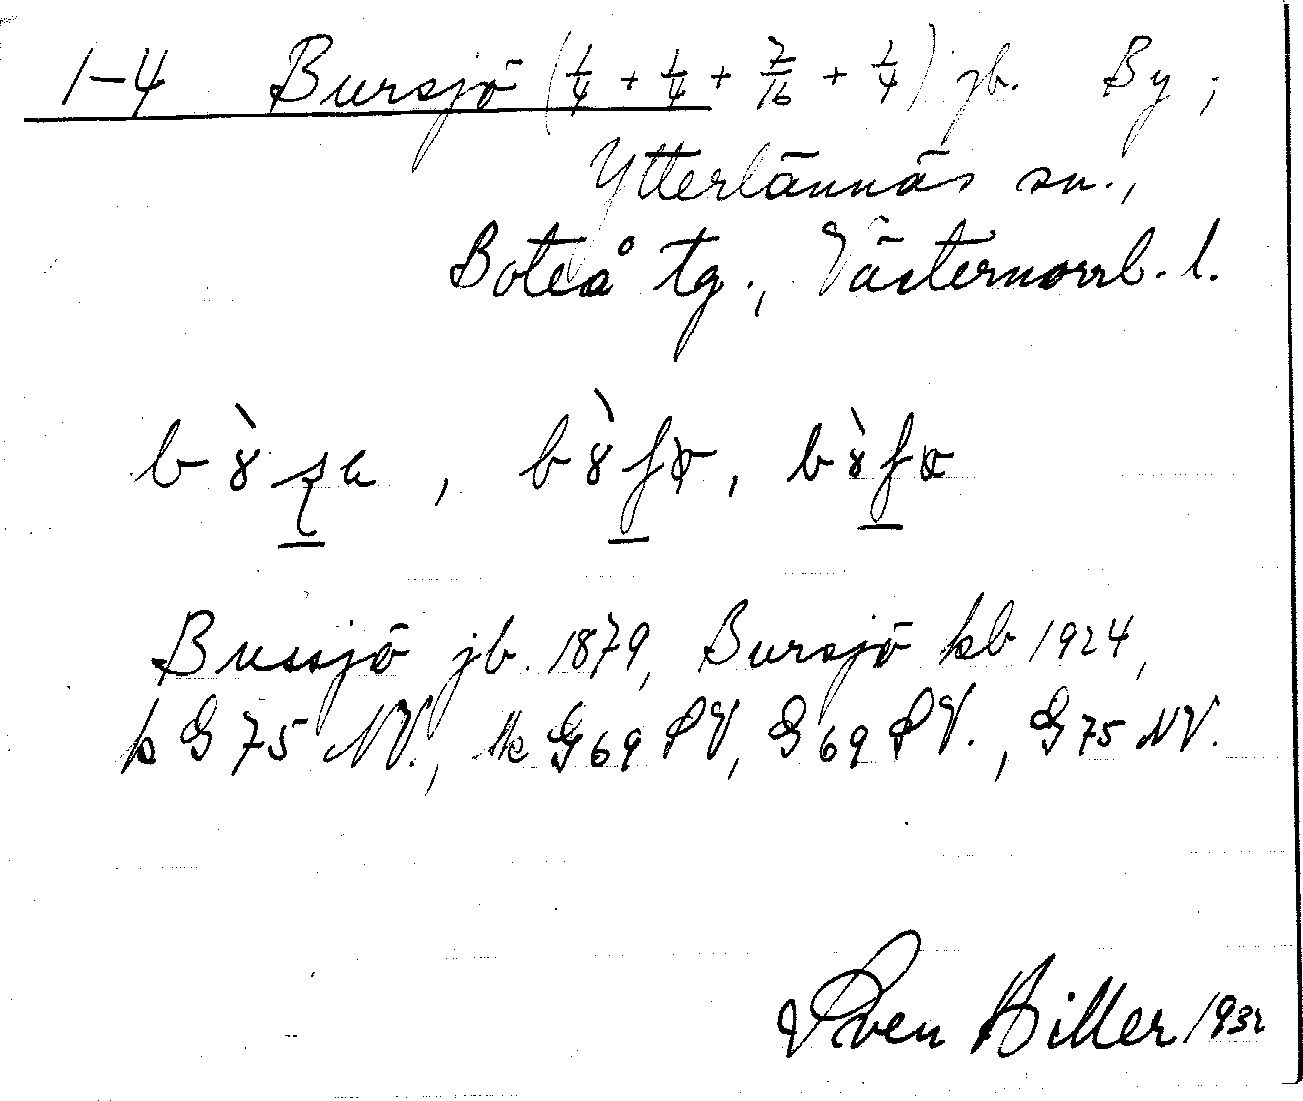 1-4 Bursjö (1/4 + 1/4 + 7/16 + 1/4) jb. By;
Ytterlännäs sn.,
Boteå tg., Västernorrl. l.
Bussjö jb. 1879, Bursjö kb 1924,
k G 75 NV., tk G 69 SV, G 69 SV., G 75 NV.
Sven Hiller 1932